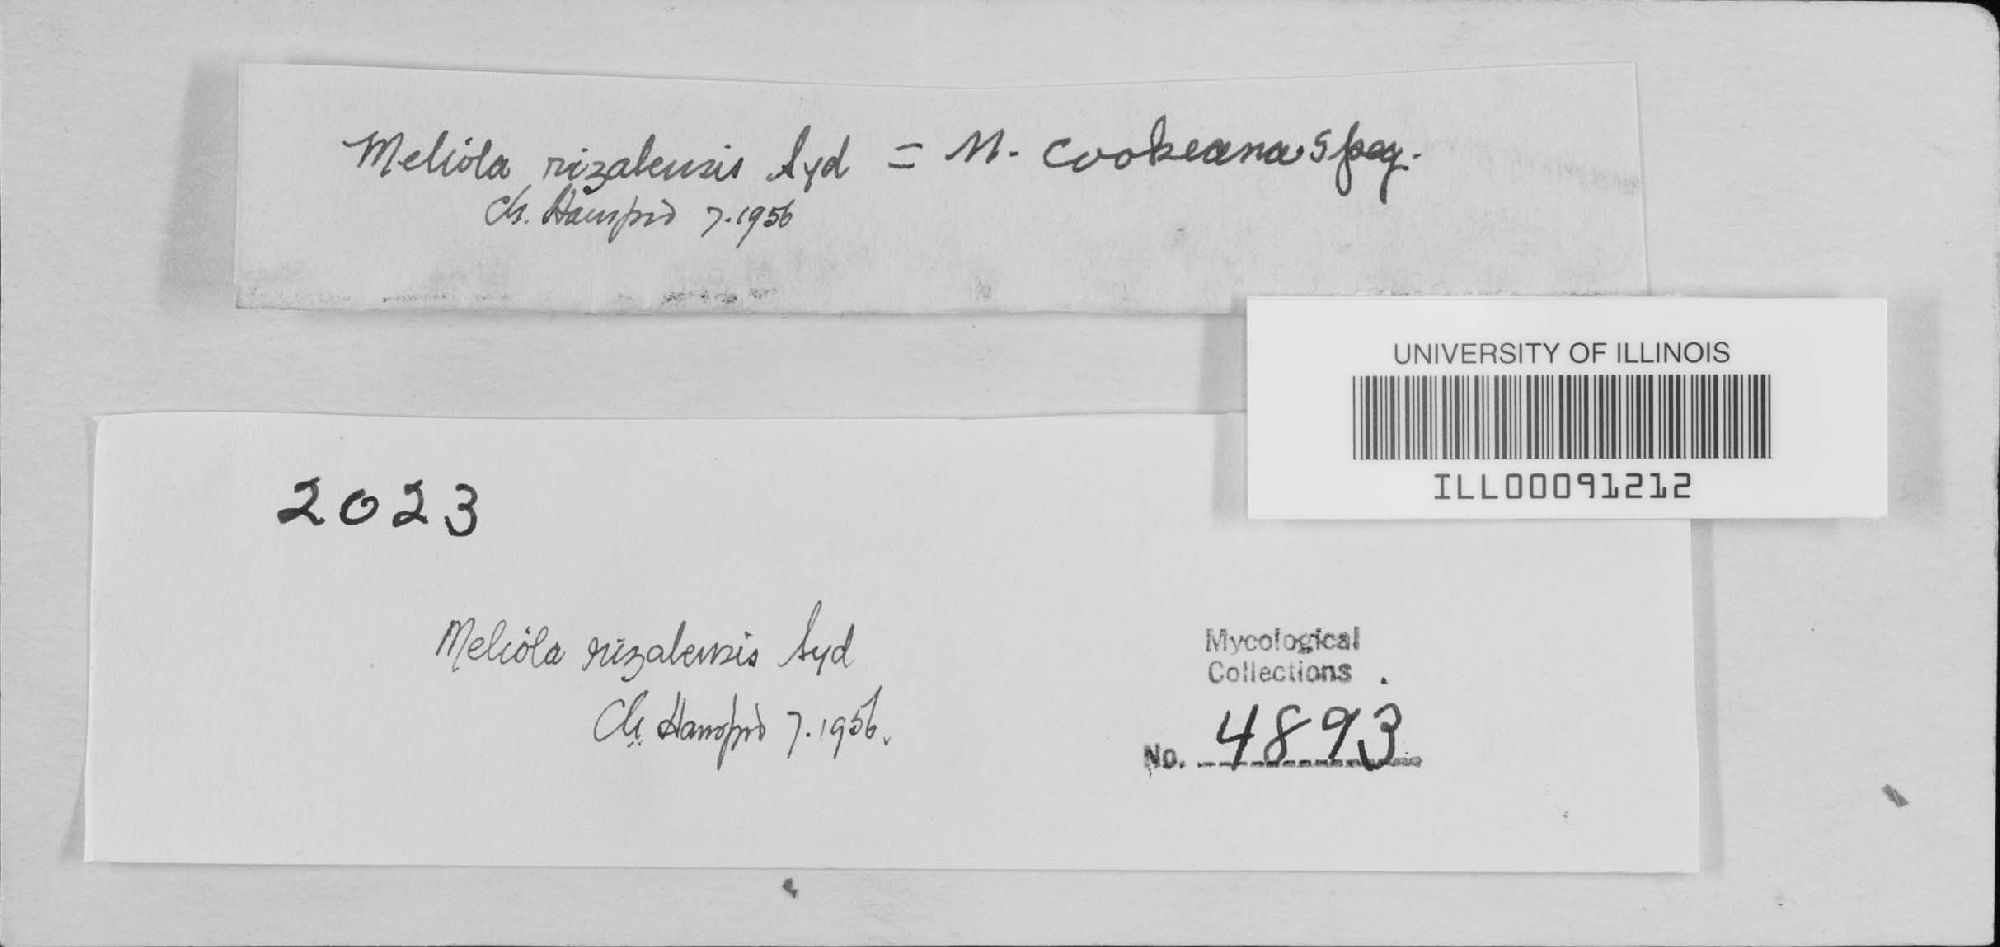 Meliola rizalensis Syd = M. cookeana Speg.
Ch. Hansford 7.1956
UNIVERSITY OF ILLINOIS
ILL00091212
2023
Meliola rizalensis Syd
Ch. Hansford 7.1956.
Mycological
Collections .
No. 4893